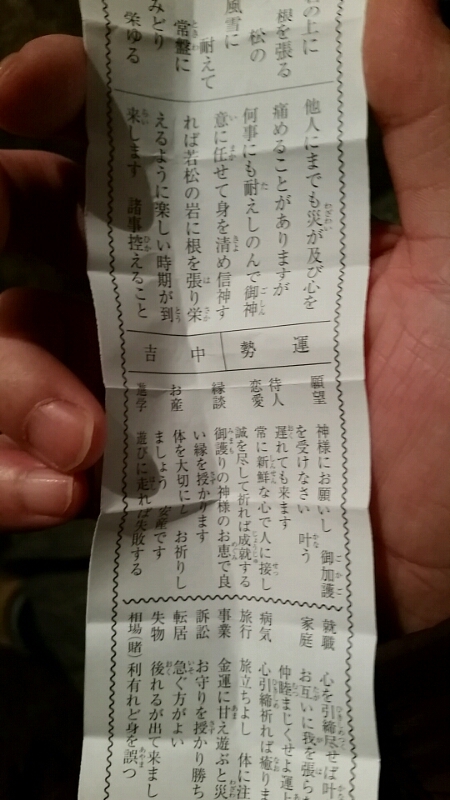 の上に
根を張る
松の
風雪に
耐えて
常盤に
みどり
栄ゆる
他人にまでも災が及び心を
痛めることがありますが
何事にも耐えしのんで御神
意に任せて身を清め信神す
れば若松の岩に根を張り栄
えるように楽しい時期が到
来します 諸事控えること
運勢
中吉
願望 神様にお願いし 御加護
を受けなさい 叶う
待人 遅れても来ます
恋愛 常に新鮮な心で人に接し
誠を尽して祈れば成就する
縁談 御護りの神様のお恵で良
い縁を授かります
お産 体を大切にし お祈りし
ましょう 安産です
進学 遊びに走れば失敗する
就職 心を引締尽せば叶
家庭 お互いに我を張ら
仲睦まじくせよ運上
病気 心引締祈れば癒りま
旅行 旅立ちよし 体に注
事業 金運に甘え遊ぶと災
訴訟 お守りを授かり勝ち
転居 急ぐ方がよい
失物 後れるが出て来まし
相場(賭) 利有れど身を誤つ